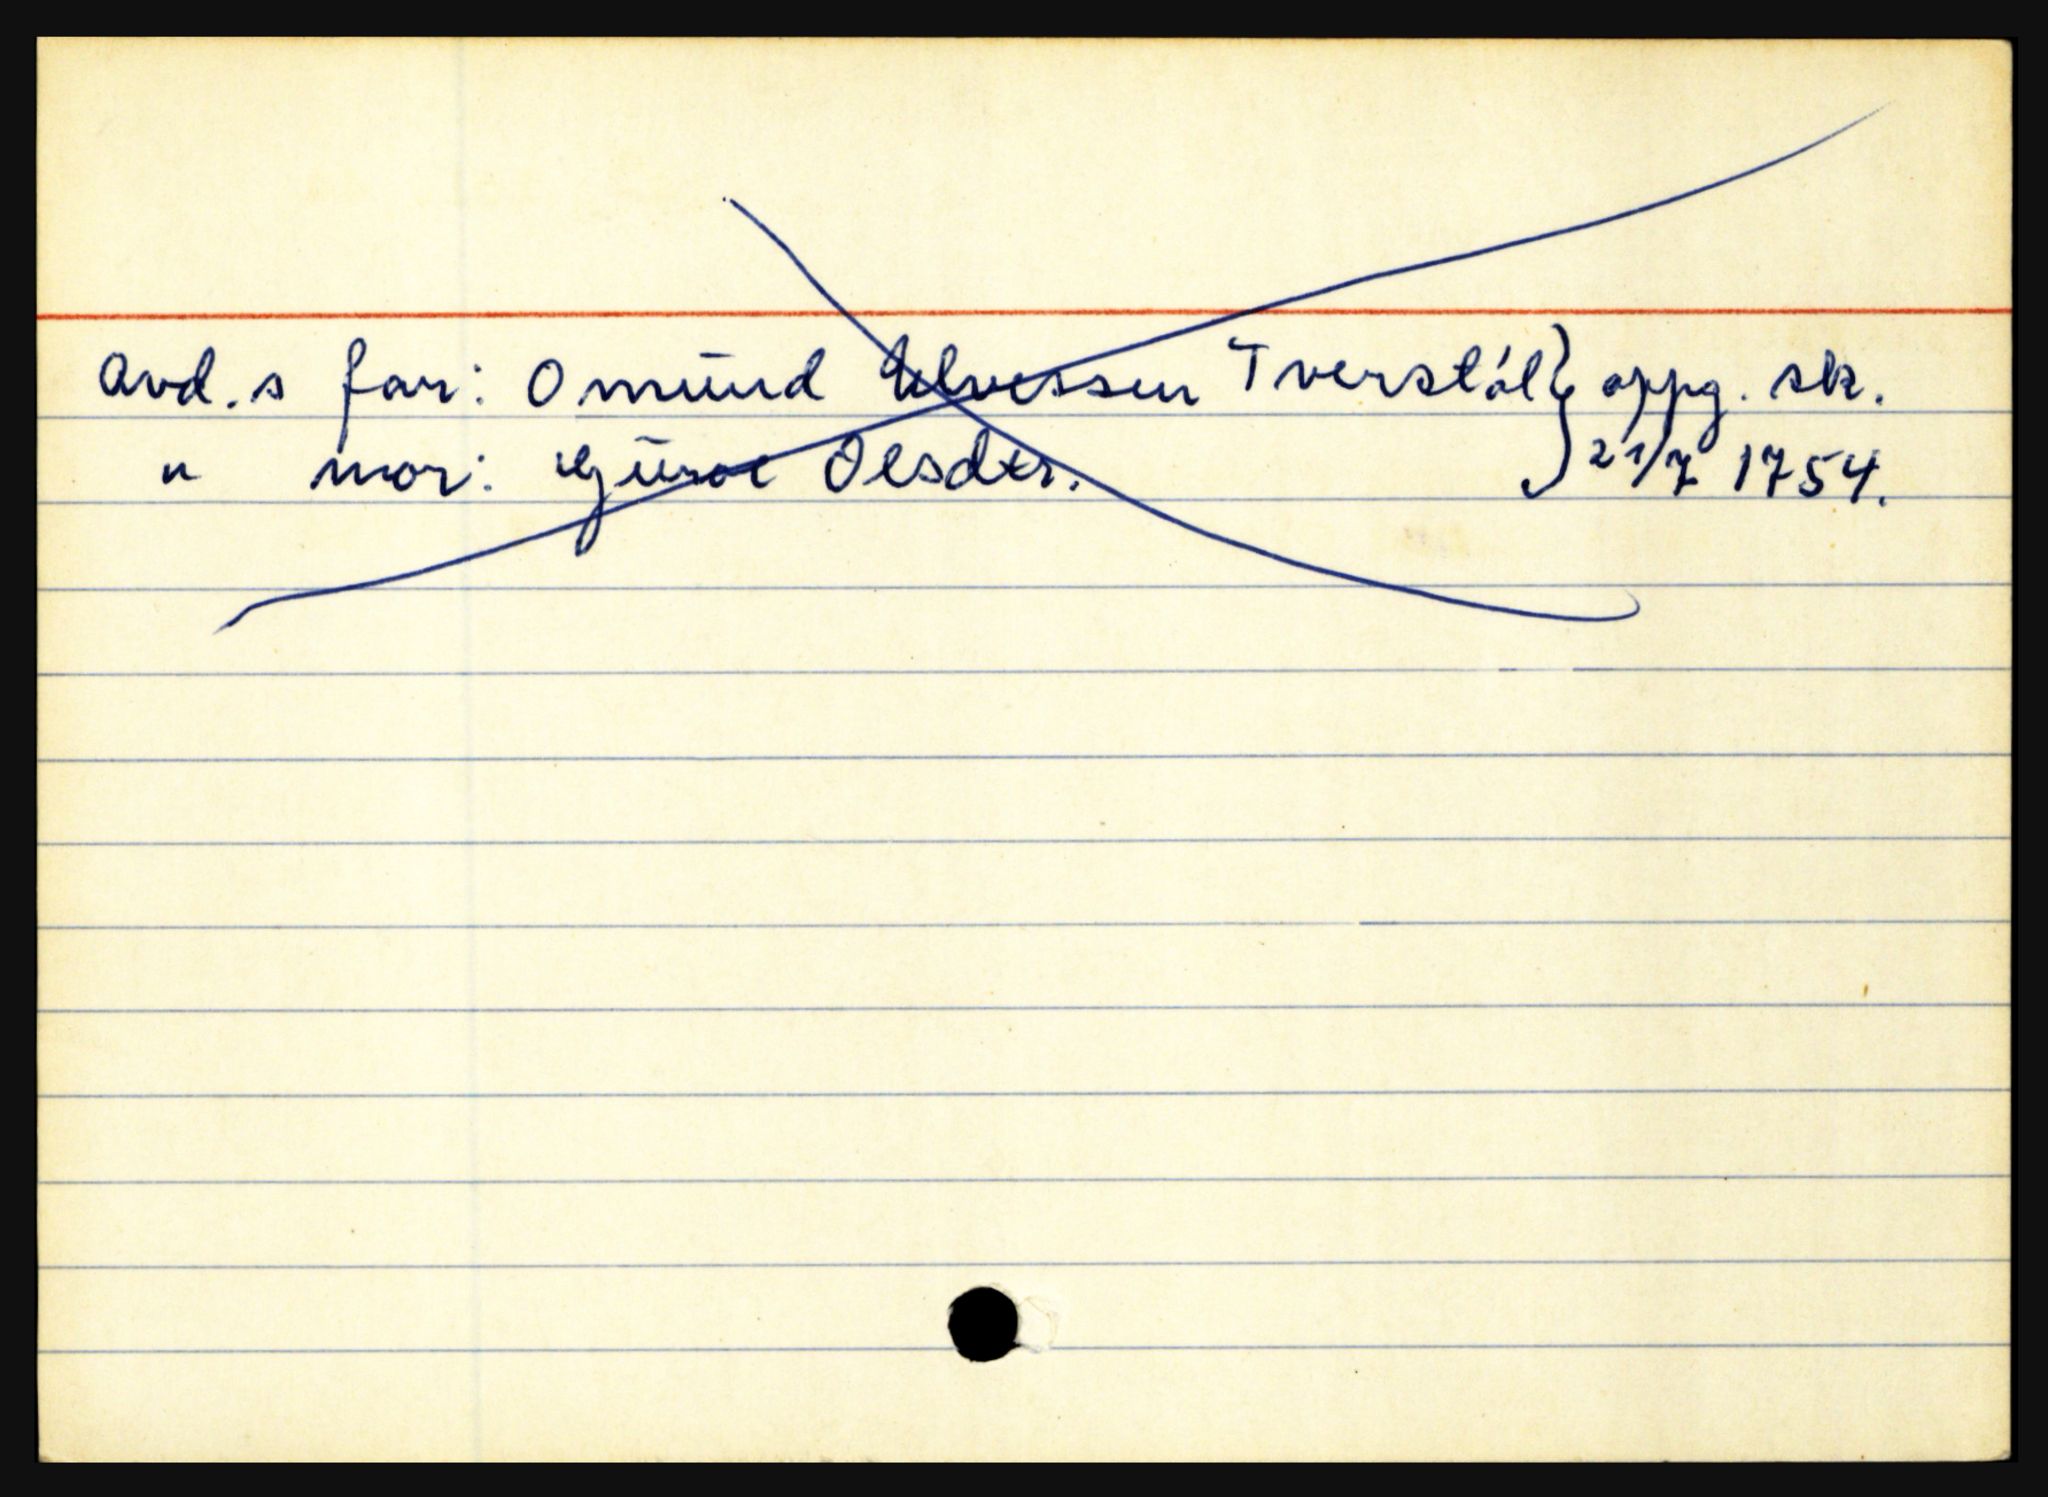 Avd. s far: Omund Ulvessen Tverstøl } oppg. sk.
" mor: Guroe Olsdtr. } 21/7 1754.